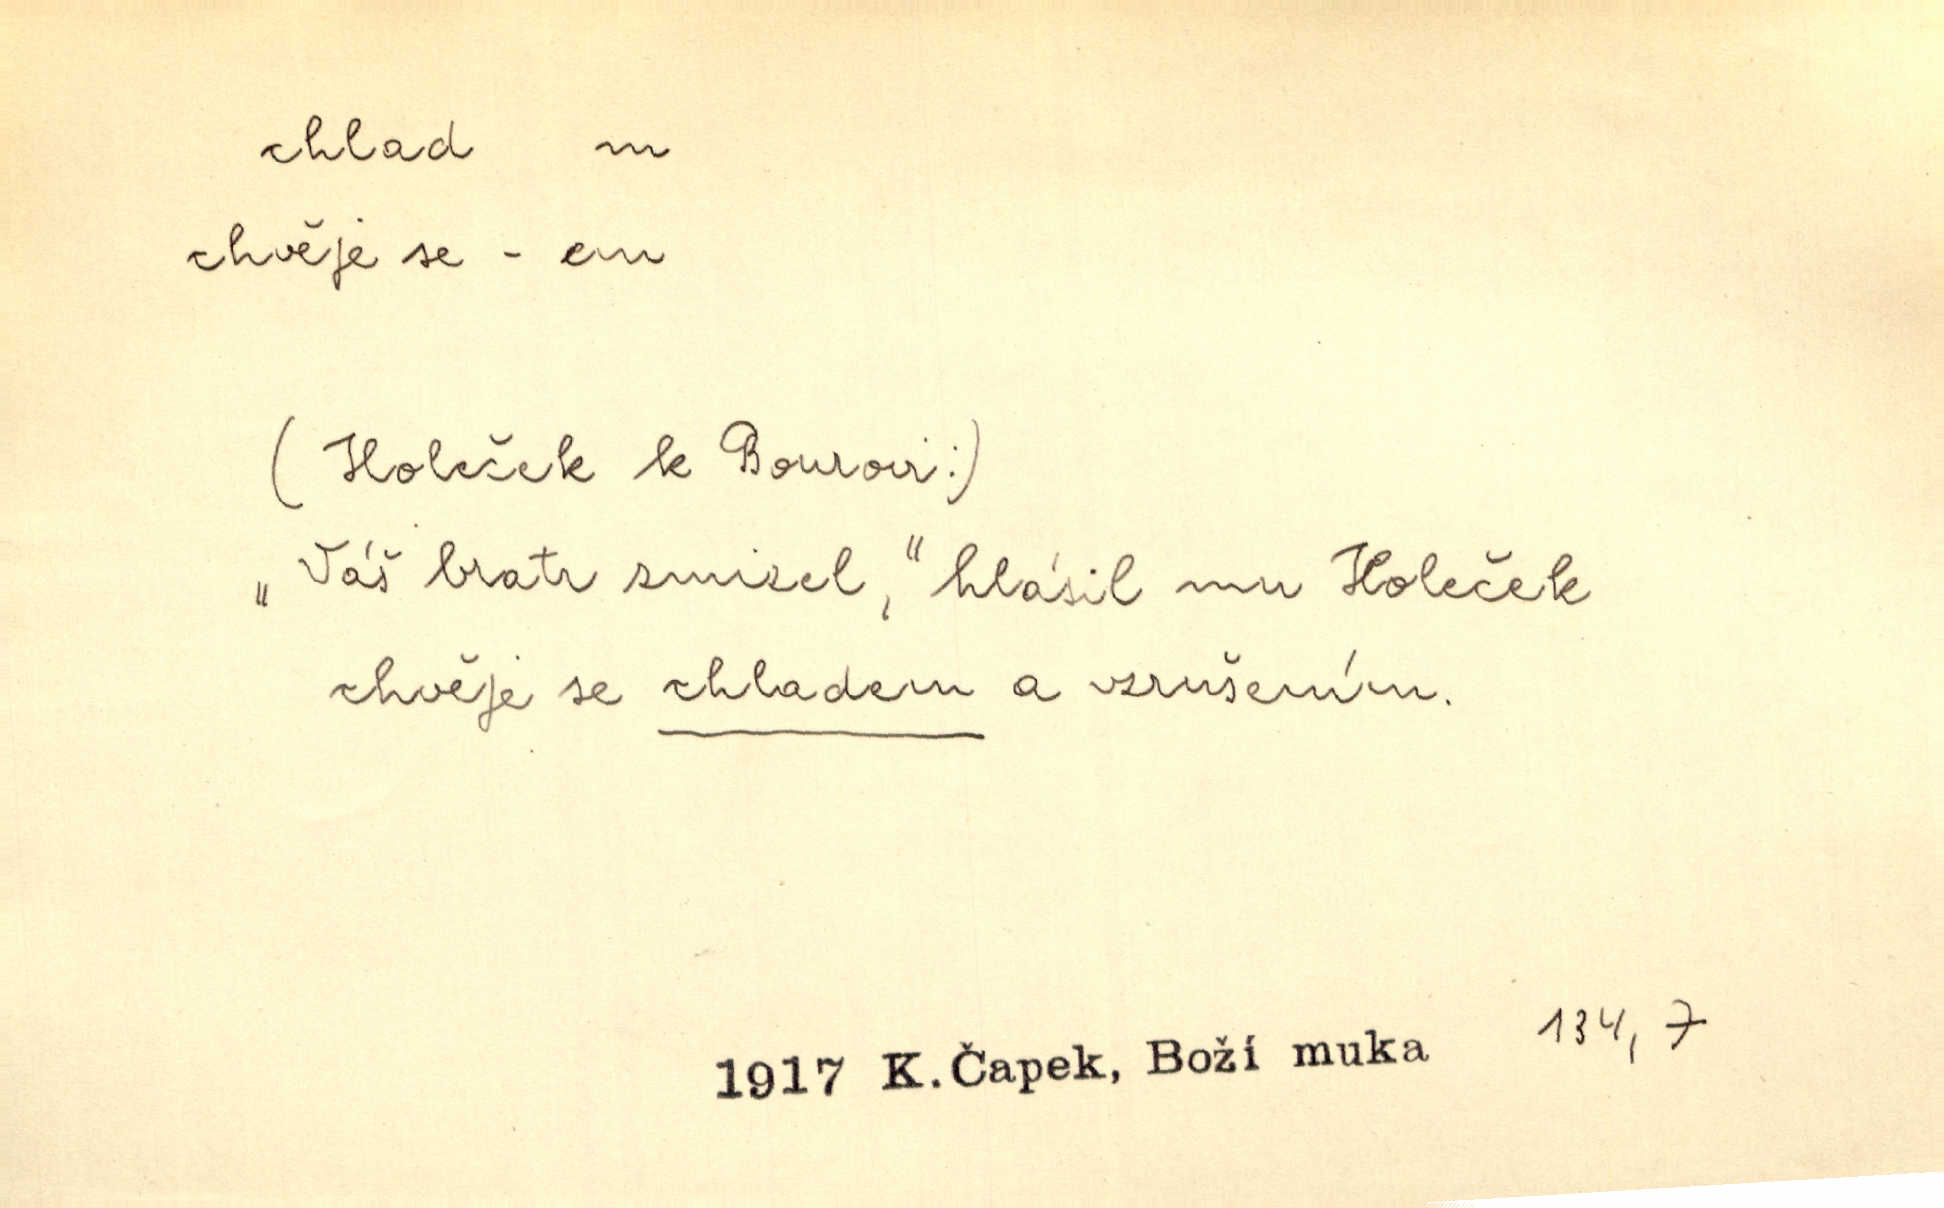 chlad m
chvěje se - em
(Holeček k Bourovi:)
„Váš bratr zmizel,“ hlásil mu Holeček
chvěje se chladem a vzrušením.
1917 K.Čapek, Boží muka 134, 7